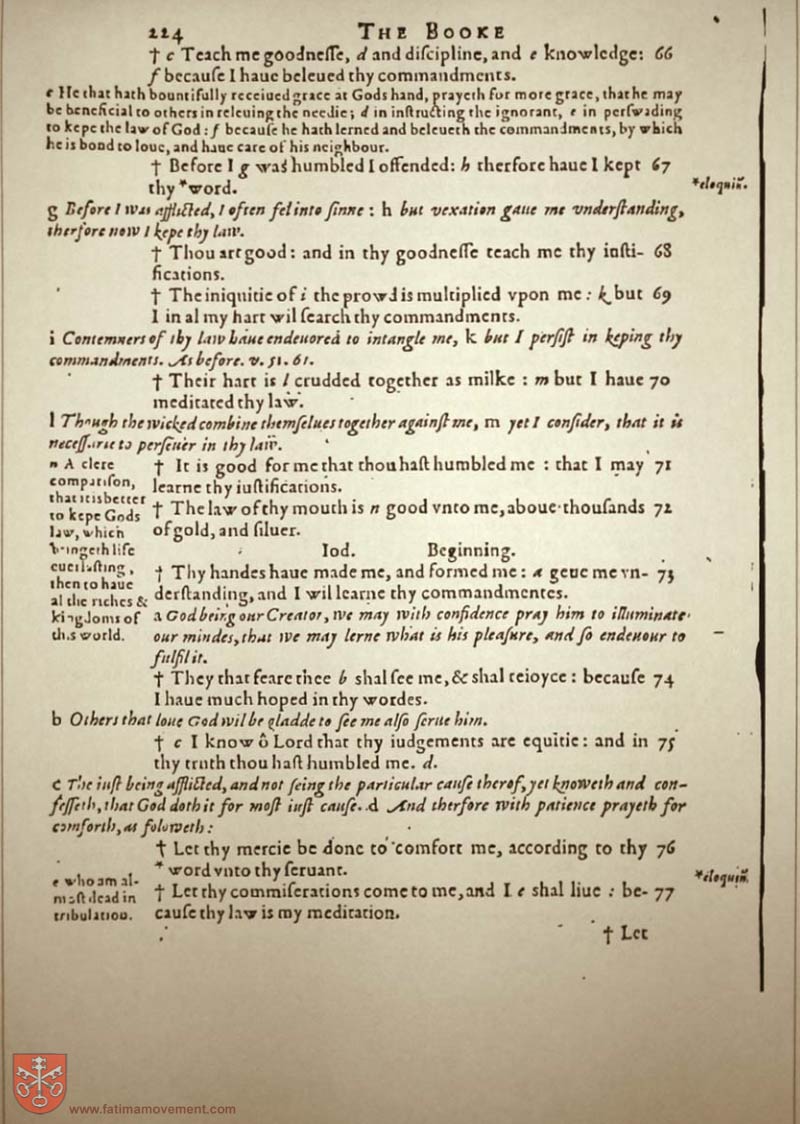 224 THE BOOKE
† c Teach me goodneſſe, d and diſcipline, and e knowledge: 66
f becauſe I haue beleued thy commandments.
e He that hath bountifully receiued grace at Gods hand, prayeth for more grace, that he may
be beneficial to others in releuing the needie; d in inſtructing the ignorant, e in perſwading
to kepe the law of God: f becauſe he hath lerned and beleueth the commandments, by which
he is bond to loue, and haue care of his neighbour.
† Before I g was humbled I offended: h therfore haue I kept 67
thy *word.
*eloquiū.
g Before I was afflicted, I often fel into ſinne: h but vexation gaue me vnderſtanding,
therfore now I kepe thy law.
† Thou art good: and in thy goodneſſe teach me thy iuſti- 68
fications.
† The iniquitie of i the prowd is multiplied vpon me: k but 69
I in al my hart wil ſearch thy commandments.
i Contemners of thy law haue endeuored to intangle me, k but I perſiſt in keping thy
commandments. As before. v. 51. 61.
† Their hart is l crudded together as milke: m but I haue 70
meditated thy law.
l Though the wicked combine themſelues together againſt me, m yet I conſider, that it is
neceſſarie to perſeuer in thy law.
† It is good for me that thou haſt humbled me: that I may 71
learne thy iuſtifications.
† The law of thy mouth is n good vnto me, aboue thouſands 72
of gold, and ſiluer.
n A clere
compariſon,
that it is better
to kepe Gods
law, which
bringeth life
euerlaſting,
then to haue
al the riches &
kingdoms of
this world.
Iod. Beginning.
† Thy handes haue made me, and formed me: a geue me vn- 73
derſtanding, and I wil learne thy commandmentes.
a God being our Creator, we may with confidence pray him to illuminate
our mindes, that we may lerne what is his pleaſure, and ſo endeuour to
fulfil it.
† They that feare thee b shal ſee me, & shal reioyce: becauſe 74
I haue much hoped in thy wordes.
b Others that loue God wil be gladde to ſee me alſo ſerue him.
† c I know ô Lord that thy iudgements are equitie: and in 75
thy truth thou haſt humbled me. d.
c The iuſt being afflicted, and not ſeing the particular cauſe therof, yet knoweth and con-
feſſeth, that God doth it for moſt iuſt cauſe. d And therfore with patience prayeth for
comforth, as foloweth:
† Let thy mercie be done to comfort me, according to thy 76
* word vnto thy ſeruant.
*eloquiū.
† Let thy commiſerations come to me, and I e shal liue: be- 77
cauſe thy law is my meditation.
e who am al-
moſt dead in
tribulation.
† Let
www.fatimamovement.com